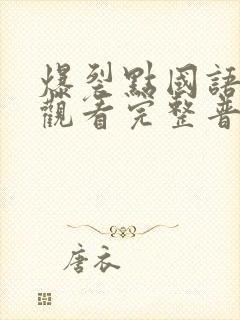 爆裂點國語
觀看完整普
唐衣